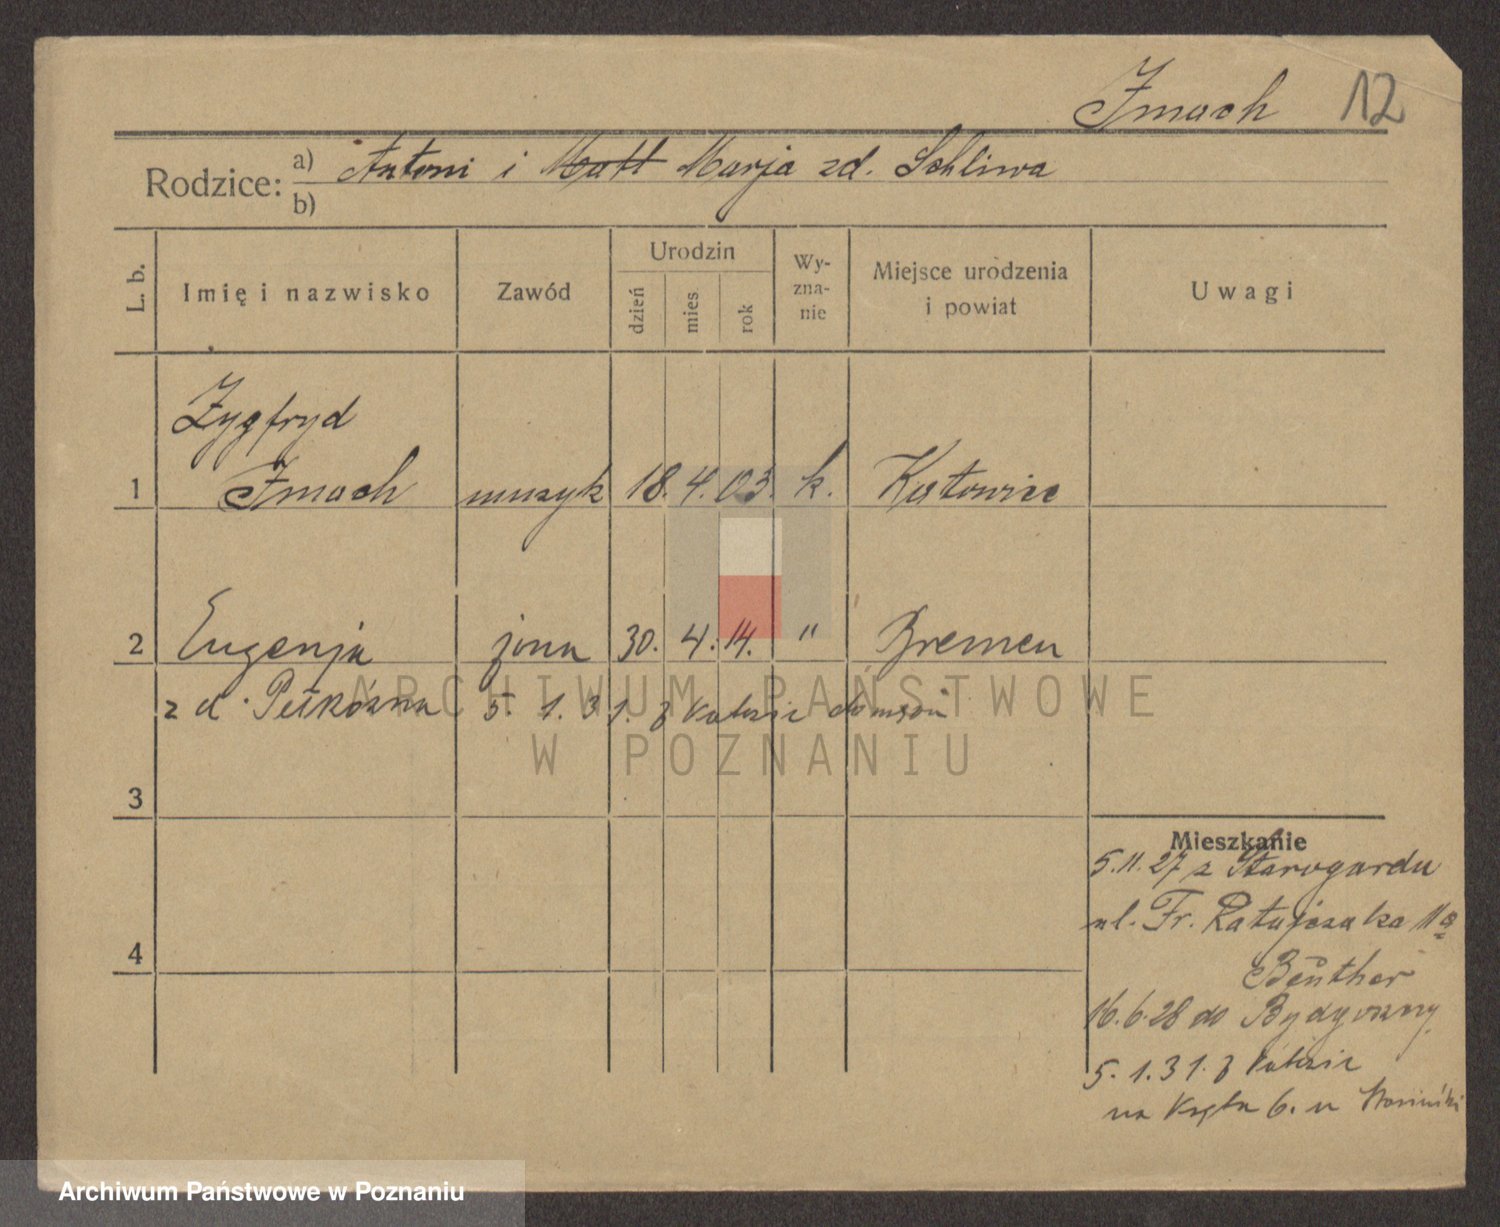 Zmach 12
Rodzice: a) Antoni i Matt Marja zd. Schliwa
b)
L. b.
Imię i nazwisko
Zawód
Urodzin
dzień
mies
rok
Wy-
zna-
nie
Miejsce urodzenia
i powiat
Uwagi
Zygfryd
1 Zmach muzyk 18. 4. 03. k. Katowice
2 Eugenja żona 30. 4. 14. " Bremen
z d. 5. 1. 31. z do męża
ARCHIWUM PAŃSTWOWE
W POZNANIU
3
Mieszkanie
5.11.27 z Starogardu
ul. Fr. Ratajczaka 11a
4
Beuther
16.6.28 do Bydgoszczy
5.1.31. z
na 6. u
Archiwum Państwowe w Poznaniu